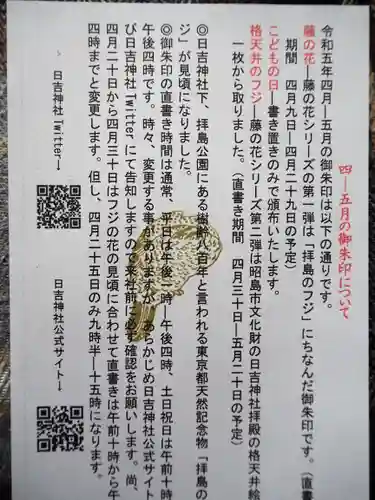 四―五月の御朱印について
令和五年四月―五月の御朱印は以下の通りです。
藤の花―藤の花シリーズの第一弾は「拝島のフジ」にちなんだ御朱印です。(直
期間 四月九日―四月二十九日の予定)
こどもの日―書き置きのみで頒布いたします。
格天井のフジ―藤の花シリーズ第二弾は昭島市文化財の日吉神社拝殿の格天井絵
一枚から取りました。(直書き期間 四月三十日―五月二十日の予定)
◎日吉神社下、拝島公園にある樹齢八百年と言われる東京都天然記念物「拝島の
ジ」が見頃になりました。
◎御朱印の直書き時間は通常、平日は午後一時―午後四時、土日祝日は午前十時
午後四時です。時々、変更する事がありますが、あらかじめ日吉神社公式サイト
び日吉神社Twitterにて告知しますので来社前に必ず確認をお願いします。尚、
四月二十日から四月三十日はフジの花の見頃に合わせて直書きは午前十時から午
四時までと変更します。但し、四月二十五日のみ九時半―十五時になります。
日吉神社Twitter→
日吉神社公式サイト→